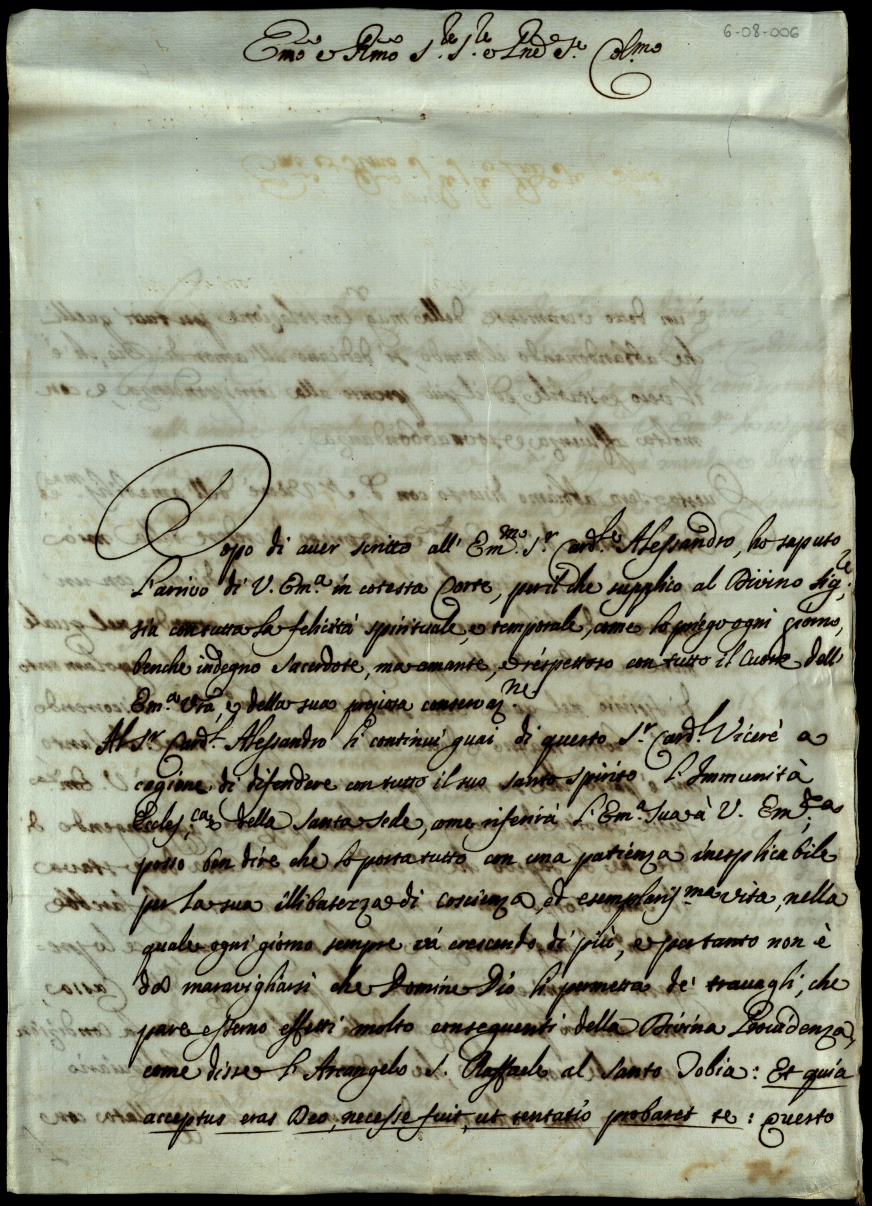 6-08-006
Em.mo e R.mo S.re S.re e P.ne S.re Col.mo
Dopo di aver scritto all' Em.mo S.r Card.le Alessandro, ho saputo
l'arrivo di V. Em.a in cotesta Corte, perilche supplico al Divino Sig.re
sia con tutta la felicità spirituale, e temporale, come lo priego ogni giorno,
benche indegno Sacerdote, ma amante, e rispettoso con tutto il cuore dell'
Em.a Vra, e della sua preziosa conservaz.ne
Al S.r Card.l Alessandro li continui guai di questo S.r Card.l Vicerè a
cagione di difendere con tutto il suo santo spirito l'Immunità
Eccles.ca e della Santa Sede, come riferirà l'Em.a Sua à V. Em.za;
posso ben dire che lo porta tutto con una patienza inesplicabile
per la sua illibatezza di coscienza, et esemplariss.ma vita, nella
quale ogni giorno sempre và crescendo di più, e pertanto non è
da maravigliarsi che Domine Dio li permetta de' travagli, che
pare esserno effetti molto conseguenti della Divina Providenza,
come disse l'Arcangelo S. Raffaele al Santo Tobia: Et quia
acceptus eras Deo, necesse fuit, ut tentatio probaret te: questo